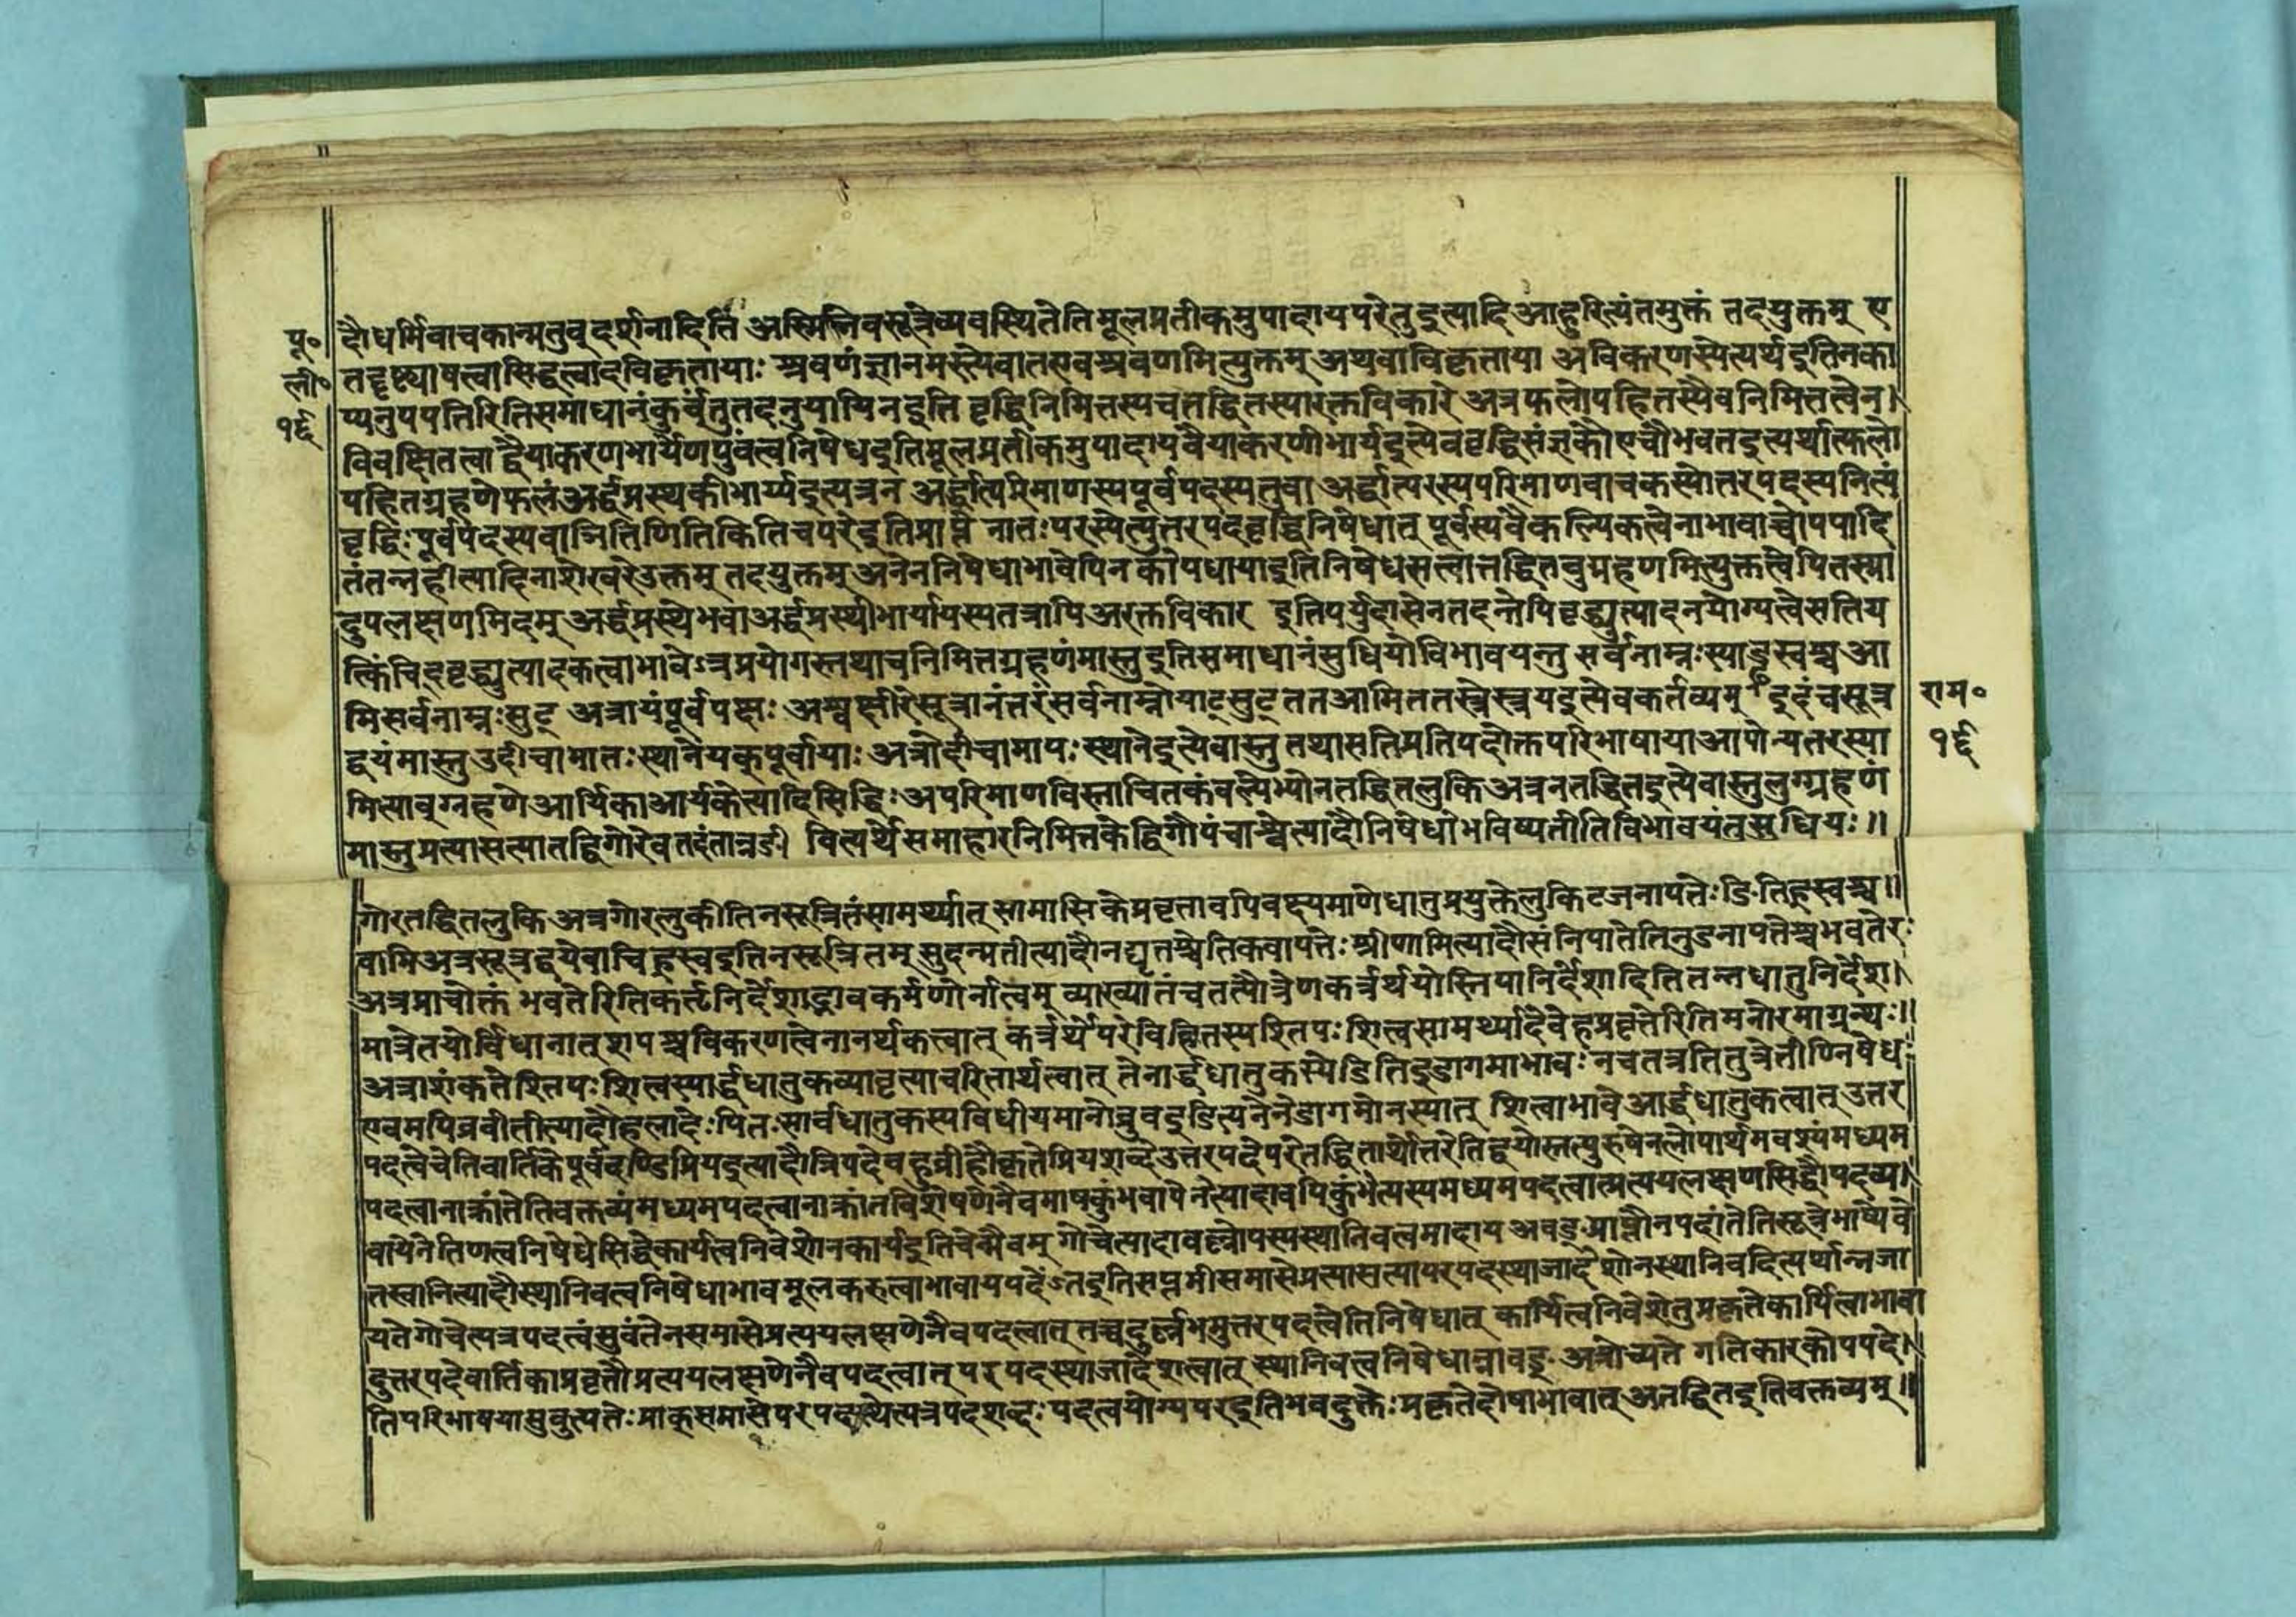 पू॰
ली॰
१६
दौधर्मिवाचकान्मतुबूदर्शनादिति अस्मिन्निवसूत्रेव्यवस्थितेतिमूलप्रतीकमुपादायपरेतुइत्यादिआहुरित्यंतमुक्तं तदयुक्तम् ए
तदृष्ट्याषत्वासिद्धत्वादविकृतायाः श्रवणंज्ञानमस्त्येवातएवश्रवणमित्युक्तम् अथवाविकृताया अविकरणस्येत्यर्थइतिनका
प्यनुपपत्तिरितिसमाधानंकुर्वंतुतदनुयायिनइति वृद्धिनिमित्तस्यचतद्धितस्यारक्तविकारे अत्रफलोपहितस्यैवनिमित्तत्वेन।
विवक्षितत्वाद्वैयाकरणभार्येणपुंवत्वनिषेधइतिमूलप्रतीकमुपादायवैयाकरणीभार्यइत्येववृद्धिसंज्ञकौएचौभवतइत्यर्थात्फलो
पहितग्रहणेफलंअर्द्धप्रस्थकीभार्य्यइत्यत्रन अर्द्धात्परिमाणस्यपूर्वपदस्यतुवा अर्द्धात्परस्यपरिमाणवाचकस्योत्तरपदस्यनित्यं
वृद्धिःपूर्वपदस्यवाञितिणितिकितिचपरेइतिप्राप्ते नातःपरस्येत्युत्तरपदवृद्धिनिषेधात् पूर्वस्यवैकल्पिकत्वेनाभावाच्चोपपादि
तंतन्नहीत्यादिनाशेखरेउक्तम् तदयुक्तम् अनेननिषेधाभावेपिन कोपधायाइतिनिषेधसत्वात्तद्धितवुग्रहणमित्युक्तत्वेपितस्या
दुपलक्षणमिदम् अर्द्धप्रस्थेभवाअर्द्धप्रस्थीभार्यायस्यतत्रापिअरक्तविकार इतिपर्युदासेनतदन्तेपिवृद्ध्युत्पादनयोग्यत्वेसतिय
त्किंचिद्वृद्ध्युत्पादकत्वाभावेऽत्रप्रयोगस्तथाचनिमित्तग्रहणंमास्तुइतिसमाधानंसुधियोविभावयन्तु सर्वनाम्नःस्याड्ढ्रस्वश्च आ
मिसर्वनाम्नःसुट् अत्रायंपूर्वपक्षः अश्वक्षीरेसूत्रानंतरंसर्वनाम्नोयाट्सुट् ततआमिततस्त्रेस्त्रयइत्येवकर्तव्यम् इदंचसूत्र
द्वयंमास्तुउदीचामातःस्थानेयकपूर्वायाः अत्रोदीचामापःस्थानेइत्येवास्तु तथासतिप्रतिपदोक्तपरिभाषायाआपोन्यतरस्या
मित्याबग्रहणेआर्यिकाआर्यकेत्यादिसिद्धिःअपरिमाणविस्ताचितकंबल्येभ्योनतद्धितलुकिअत्रनतद्धितइत्येवास्तुलुग्ग्रहणं
मास्तुप्रत्यासत्यातद्द्विगोरेवतदंतान्नङी वित्यर्थेसमाहारनिमित्तकेद्विगौपंचाश्वेत्यादौनिषेधोभविष्यतीतिविभावयंतुसुधियः॥
राम॰
१६
गोरतद्धितलुकिअत्रगोरलुकीतिनसूत्रितंसामर्थ्यात् सामासिकेप्रवृत्तावपिवक्ष्यमाणेधातुप्रयुक्तेलुकिटजनापत्तेः ङितिह्रस्वश्च॥
वामिअत्रसूत्रद्वयेवाचिह्रस्वइतिनसूत्रितम् सुदन्मतीत्यादौनद्यृतश्चेतिकबापत्तेः श्रीणामित्यादौसंनिपातेतिनुडनापत्तेश्च भवतेरः
अत्रप्राचोक्तं भवतेरितिकर्तृनिर्देशाद्भावकर्मणोर्नात्वम् व्याख्यातंचतत्पौत्रेणकर्त्रर्थयोस्तिपानिर्देशादितितन्नधातुनिर्देश।
मात्रेतयोर्विधानात् शपश्चविकरणत्वेनानर्थकत्वात् कर्त्रर्थेपरेविहितस्यश्तिपः शित्वसामर्थ्यादेवेहप्रवृत्तेरितिमनोरमाग्रन्थः॥
अत्राशंकतेश्तिपः शित्वस्यार्द्धधातुकव्यावृत्याचरितार्थत्वात् तेनार्द्धधातुकस्येडितिइडागमाभावः नचतत्रतितुत्रेतीण्निषेधः
एवमपिब्रवीतीत्यादौहलादेःपितःसार्वधातुकस्यविधीयमानोब्रुवइडित्यनेनेडागमोनस्यात् शित्वाभावेआर्द्धधातुकत्वात् उत्तर
पदत्वेचेतिवार्तिकेपूर्वदण्डिप्रियइत्यादौत्रिपदेबहुव्रीहौकृतेप्रियशब्देउत्तरपदेपरेतद्धितार्थोत्तरेतिद्वयोस्तत्पुरुषेनलोपार्थमवश्यंमध्यम
पदत्वानाक्रांतेतिवक्तव्यंमध्यमपदत्वानाक्रांतविशेषणेनैवमाषकुंभवापेनेत्यादावपिकुंभेत्यस्यमध्यमपदत्वात्प्रत्ययलक्षणसिद्धौपदव्य।
वायेनेतिणत्वनिषेधेसिद्धेकार्यत्वनिवेशोनकार्यइतिचेन्मैवम् गोचेत्यादावल्लोपस्यस्थानिवत्वमादाय अवङ्प्राप्तौनपदांतेतिसूत्रेभाष्येवे
तस्वानित्यादौस्थानिवत्वनिषेधाभावमूलकरुत्वाभावायपदेंऽतइतिसप्तमीसमासेप्रत्यासत्यापरपदस्याजादेशोनस्थानिवदित्यर्थान्नजा
यतेगोचेत्यत्रपदत्वंसुबंतेनसमासेप्रत्ययलक्षणेनैवपदत्वात् तच्चदुर्लभमुत्तरपदत्वेतिनिषेधात् कार्यित्वनिवेशेतुप्रकृतेकार्यित्वाभावा
दुत्तरपदेवार्तिकाप्रवृत्तौप्रत्ययलक्षणेनैवपदत्वात् परपदस्याजादेशत्वात् स्थानिवत्वनिषेधान्नावङ् अत्रोच्यते गतिकारकोपपदे।
तिपरिभाषयासुबुत्पत्तेःप्राक्समासेपरेपदस्येत्यत्रपदशब्दः पदत्वयोग्यपरइतिभवदुक्तेः प्रकृतेदोषाभावात् अतद्धितइतिवक्तव्यम्॥